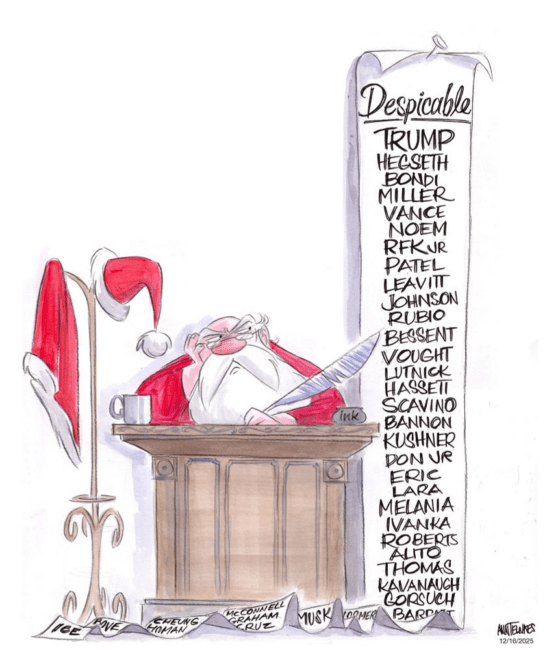 Despicable
TRUMP
HEGSETH
BONDI
MILLER
VANCE
NOEM
RFK JR
PATEL
LEAVITT
JOHNSON
RUBIO
BESSENT
VOUGHT
LUTNICK
HASSETT
SCAVINO
BANNON
KUSHNER
DON JR
ERIC
LARA
MELANIA
IVANKA
ROBERTS
ALITO
THOMAS
KAVANAUGH
GORSUCH
ink
MCCONNELL
GRAHAM
CRUZ
MUSK
CHEUNG
HOMAN
12/16/2025